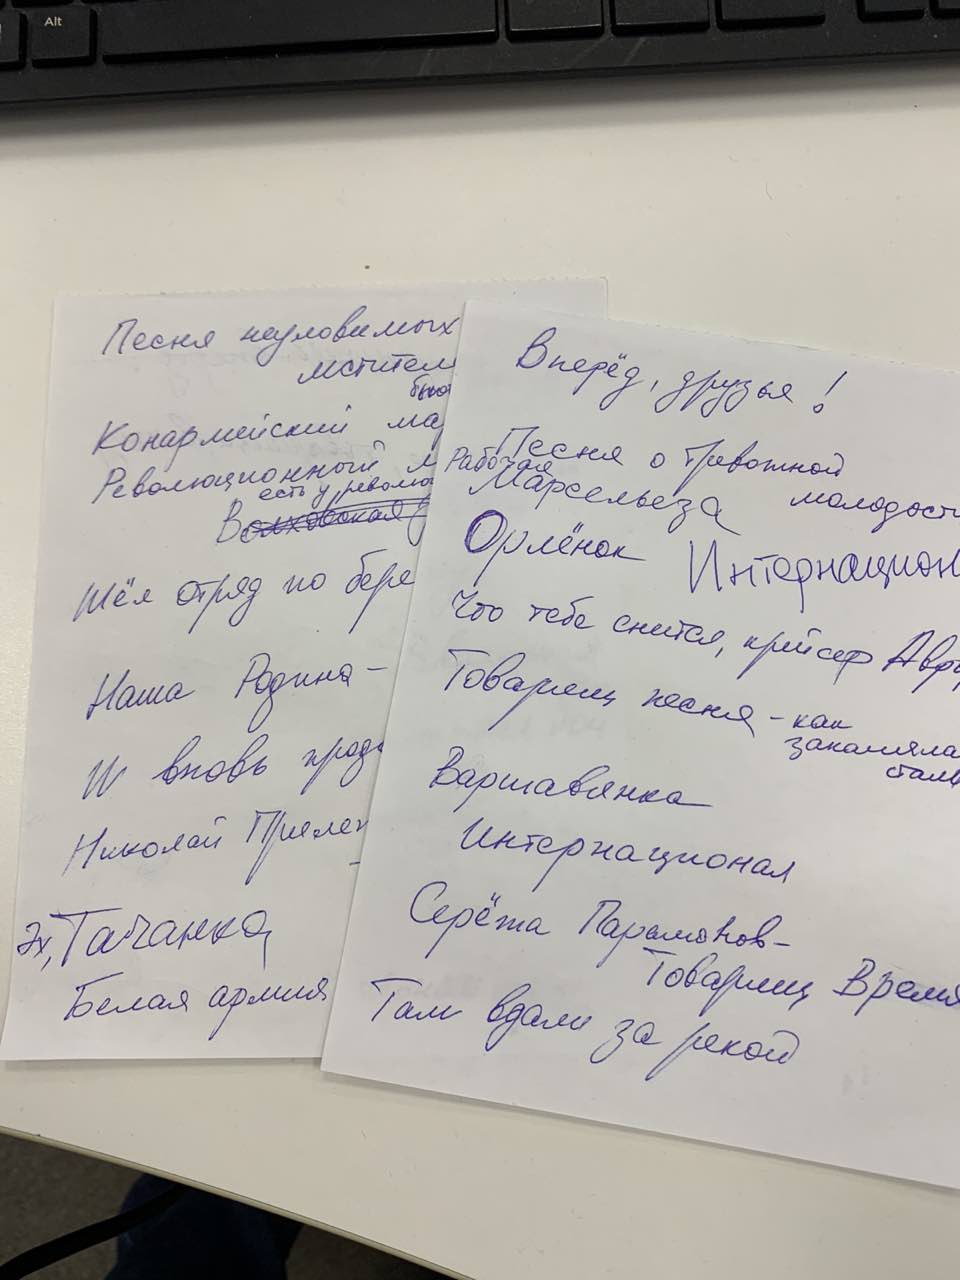 Alt
Песня неуловимых
мстител
Конармейский мар
Революционный м
есть у револю
Шёл отряд по бере
Наша Родина -
И вновь продо
Николай
Эх, Тачанка,
Белая армия
Вперёд, друзья!
Песня о тревожной
молодости
Рабочая
Марсельеза
Орлёнок Интернационал
Что тебе снится, крейсер Авро
Товарищ песня - как
закаляла
сталь
Варшавянка
Интернационал
Серёжа Парамонов -
Товарищ Время
Там вдали за рекой